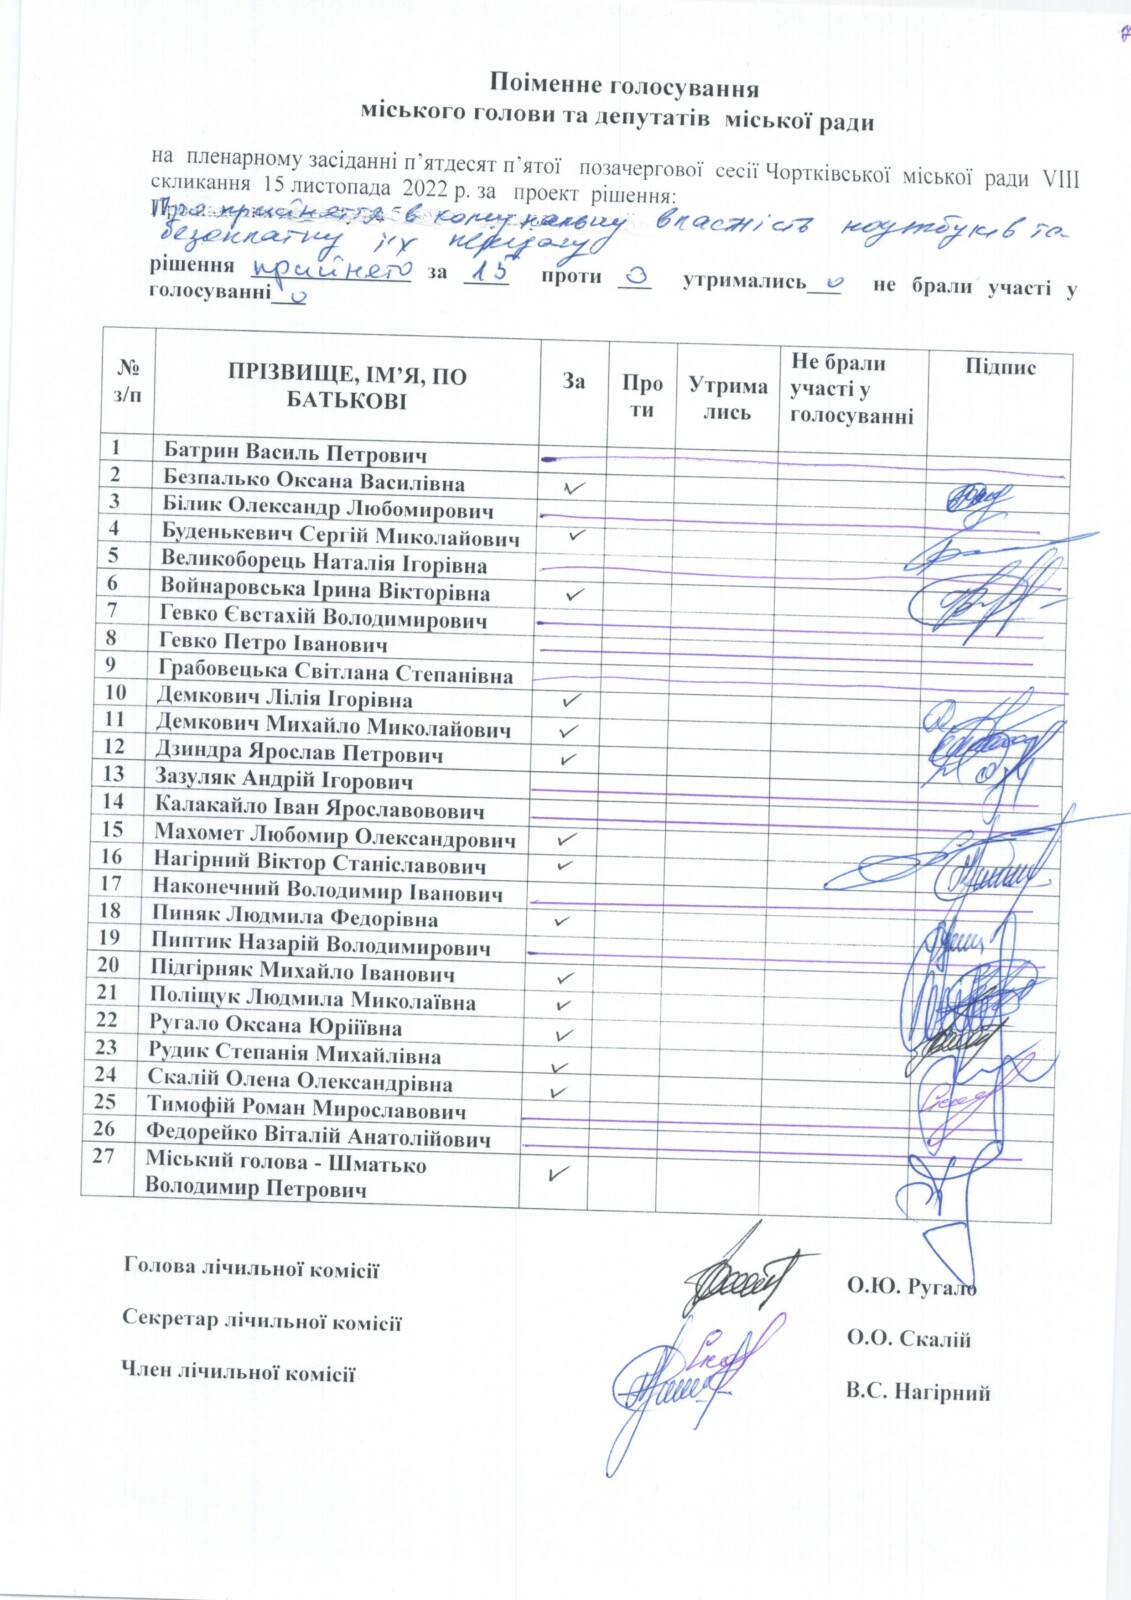 Поіменне голосування
міського голови та депутатів міської ради
на пленарному засіданні п’ятдесят п’ятої позачергової сесії Чортківської міської ради VIII
скликання 15 листопада 2022 р. за проект рішення:
Про прийняття в комунальну власність ноутбуків та
безоплатну їх передачу
рішення прийнято за 15 проти 0 утримались 0 не брали участі у
голосуванні 0
№ з/п ПРІЗВИЩЕ, ІМ’Я, ПО БАТЬКОВІ За Про ти Утрима лись Не брали участі у голосуванні Підпис
1 Батрин Василь Петрович
2 Безпалько Оксана Василівна ✓
3 Білик Олександр Любомирович
4 Буденькевич Сергій Миколайович ✓
5 Великоборець Наталія Ігорівна
6 Войнаровська Ірина Вікторівна ✓
7 Гевко Євстахій Володимирович
8 Гевко Петро Іванович
9 Грабовецька Світлана Степанівна
10 Демкович Лілія Ігорівна ✓
11 Демкович Михайло Миколайович ✓
12 Дзиндра Ярослав Петрович ✓
13 Зазуляк Андрій Ігорович
14 Калакайло Іван Ярославовович
15 Махомет Любомир Олександрович ✓
16 Нагірний Віктор Станіславович ✓
17 Наконечний Володимир Іванович
18 Пиняк Людмила Федорівна ✓
19 Пиптик Назарій Володимирович
20 Підгірняк Михайло Іванович ✓
21 Поліщук Людмила Миколаївна ✓
22 Ругало Оксана Юріїївна ✓
23 Рудик Степанія Михайлівна ✓
24 Скалій Олена Олександрівна ✓
25 Тимофій Роман Мирославович
26 Федорейко Віталій Анатолійович
27 Міський голова - Шматько ✓
Володимир Петрович
Голова лічильної комісії О.Ю. Ругало
Секретар лічильної комісії О.О. Скалій
Член лічильної комісії В.С. Нагірний